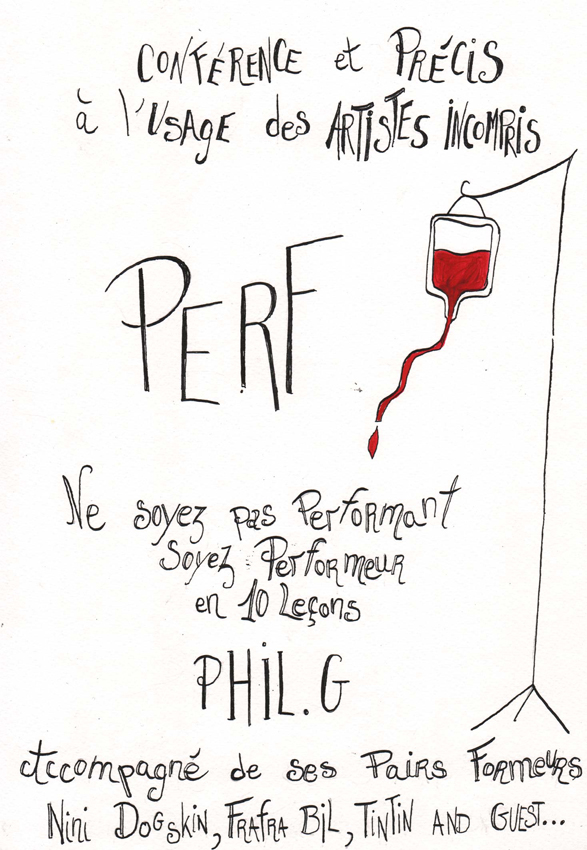 CONFÉRENCE et PRÉCIS
à l'USAGE des ARTISTES INCOMPRIS
PERF
Ne soyez pas Performant
soyez Performeur
en 10 Leçons
PHIL.G
Accompagné de ses Pairs Formeurs
Nini DOGSKIN, FRAFRA BIL, TINTIN AND GUEST...